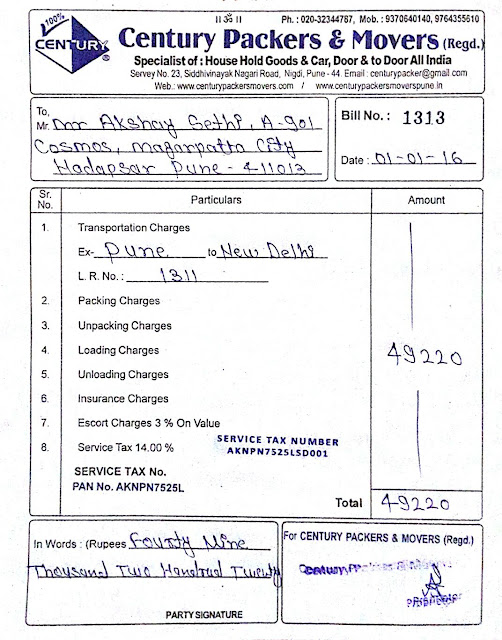 || ॐ ||
Ph. : 020-32344787, Mob. : 9370640140, 9764355610
100%
CENTURY
Century Packers & Movers (Regd.)
Specialist of : House Hold Goods & Car, Door & to Door All India
Servey No. 23, Siddhivinayak Nagari Road, Nigdi, Pune - 44. Email : centurypacker@gmail.com
Web.: www.centurypackersmovers.com / www.centurypackersmoverspune.in
To,
Mr. Mr Akshay Sethi, A-901
Cosmos, Magarpatta City
Hadapsar Pune - 411013
Bill No. : 1313
Date : 01-01-16
Sr. No. Particulars Amount
1. Transportation Charges
Ex- Pune to New Delhi
L. R. No. : 1311
2. Packing Charges
3. Unpacking Charges
4. Loading Charges 49220
5. Unloading Charges
6. Insurance Charges
7. Escort Charges 3 % On Value
8. Service Tax 14.00 %
SERVICE TAX NUMBER
AKNPN7525LSD001
SERVICE TAX No.
PAN No. AKNPN7525L
Total 49220
In Words : (Rupees Fourty Nine
Thousand Two Hundred Twenty
PARTY SIGNATURE
For CENTURY PACKERS & MOVERS (Regd.)
Proprietor